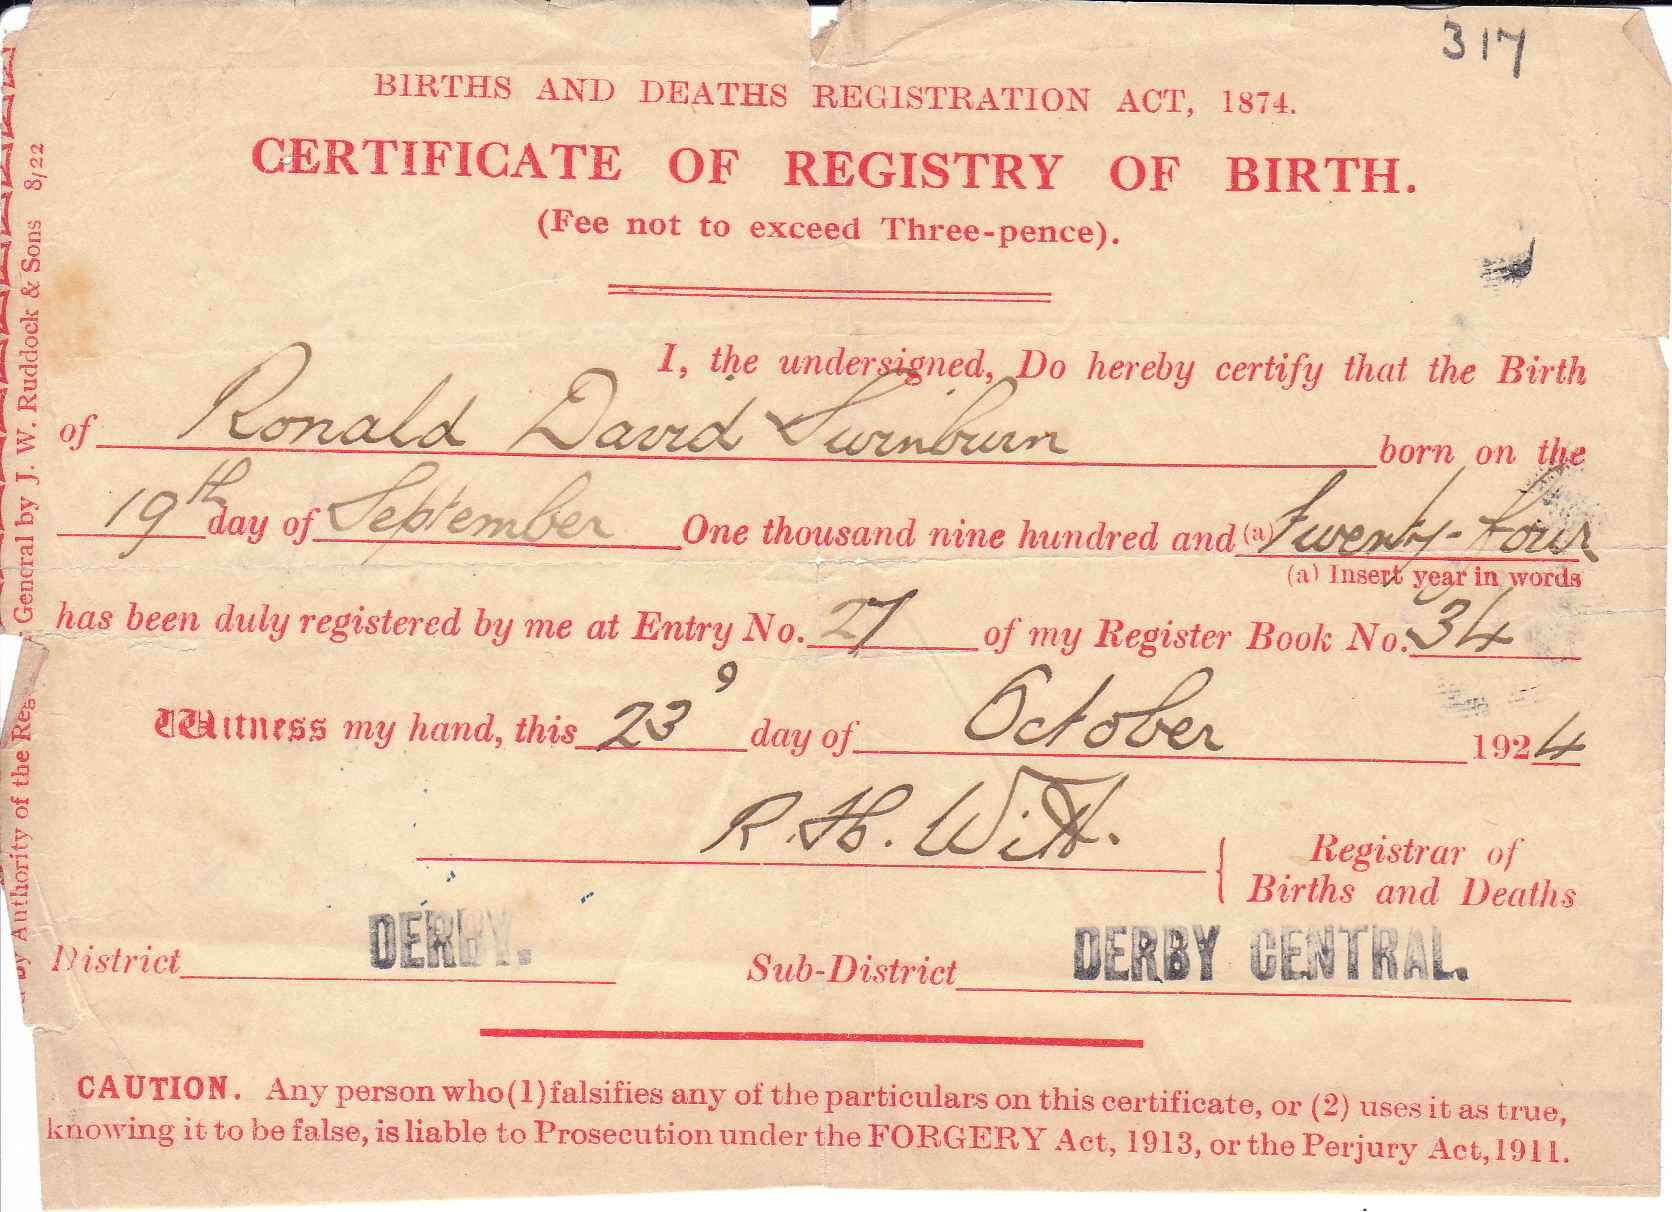 317
BIRTHS AND DEATHS REGISTRATION ACT, 1874.
CERTIFICATE OF REGISTRY OF BIRTH.
(Fee not to exceed Three-pence).
I, the undersigned, Do hereby certify that the Birth
of Ronald David Swinburn born on the
19th day of September One thousand nine hundred and (a) twenty-four
(a) Insert year in words
has been duly registered by me at Entry No. 27 of my Register Book No. 34
Witness my hand, this 23 day of October 1924
R. H. Witt.
Registrar of
Births and Deaths
District DERBY. Sub-District DERBY CENTRAL.
CAUTION. Any person who (1) falsifies any of the particulars on this certificate, or (2) uses it as true,
knowing it to be false, is liable to Prosecution under the FORGERY Act, 1913, or the Perjury Act, 1911.
By Authority of the Reg General by J. W. Ruddock & Sons 8/22